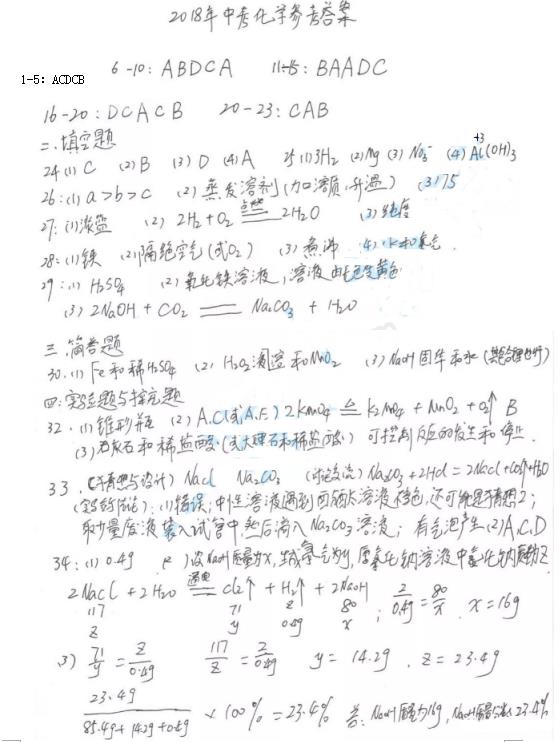 2018年中考化学参考答案
1-5: ACDCB
6-10: ABDCA 11-15: BAADC
16-20: DCACB 20-23: CAB
二.填空题
24.(1) C (2) B (3) D (4) A 25 (1) 3H₂ (2) Mg (3) NO₃⁻ (4) Al(OH)₃ +3
26:(1) a>b>c (2) 蒸发溶剂(加溶质,升温) (3)175
27:(1) (2) 2H₂+O₂ 点燃 2H₂O (3) 纯度
28:(1)铁 (2)隔绝空气(或O₂) (3) 煮沸 (4)
29:(1) H₂SO₄ (2) 氧化铁溶液,溶液由无色变黄色
(3) 2NaOH + CO₂ == Na₂CO₃ + H₂O
三.简答题
30.(1) Fe和稀H₂SO₄ (2) H₂O₂溶液和MnO₂ (3) NaOH固体和水
四:实验题与探究题
32.(1)锥形瓶 (2) A.C(或A.F) 2KMnO₄ △ K₂MnO₄ + MnO₂ + O₂↑ B
(3) 石灰石和稀盐酸(或大理石和稀盐酸) 可控制反应的发生和停止.
33. (猜想与设计) NaCl Na₂CO₃ (讨论交流) Na₂CO₃+2HCl=2NaCl+CO₂↑+H₂O
(1)错误,中性溶液遇到 溶液 色,还可能是猜想2;
取少量废液装入试管中,然后滴入Na₂CO₃溶液;有气泡产生(2)A,C,D
34:(1) 0.4g (2) 设NaOH质量为x,生成氯气为y,原氯化钠溶液中氯化钠质量为z
2NaCl + 2H₂O 通电 Cl₂↑ + H₂↑ + 2NaOH 2/0.4g = 80/x x=16g
117 71 2 80
z y 0.4g x
3) 71/y = 2/0.4g 117/z = 2/0.4g y = 14.2g . z = 23.4g
23.4g/(85.4g+14.2g+0.4g) × 100% = 23.4% 答: NaOH质量为16g, 23.4%